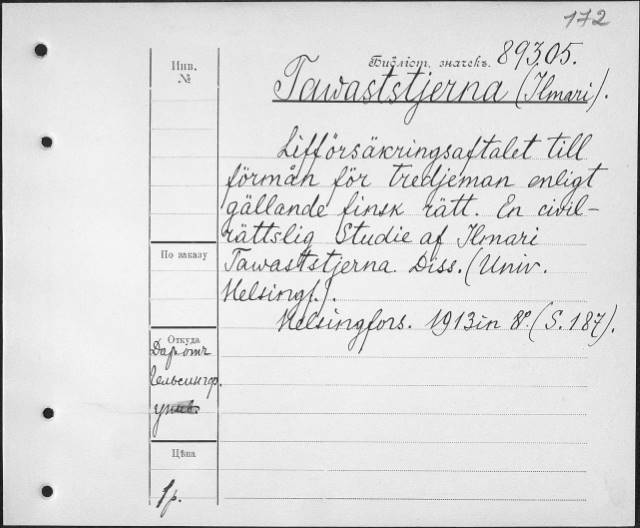 172
Инв.
№
Библіот. значекъ. 89305.
Tawaststjerna (Ilmari).
Lifförsäkringsaftalet till
förmån för tredjeman enligt
gällande finsk rätt. En civil-
rättslig Studie af Ilmari
По заказу
Tawaststjerna. Diss. (Univ.
Helsingf.).
Helsingfors. 1913 in 8º. (S. 187).
Откуда
Дар отъ
Гельсингф.
унив.
Цѣна
1 р.